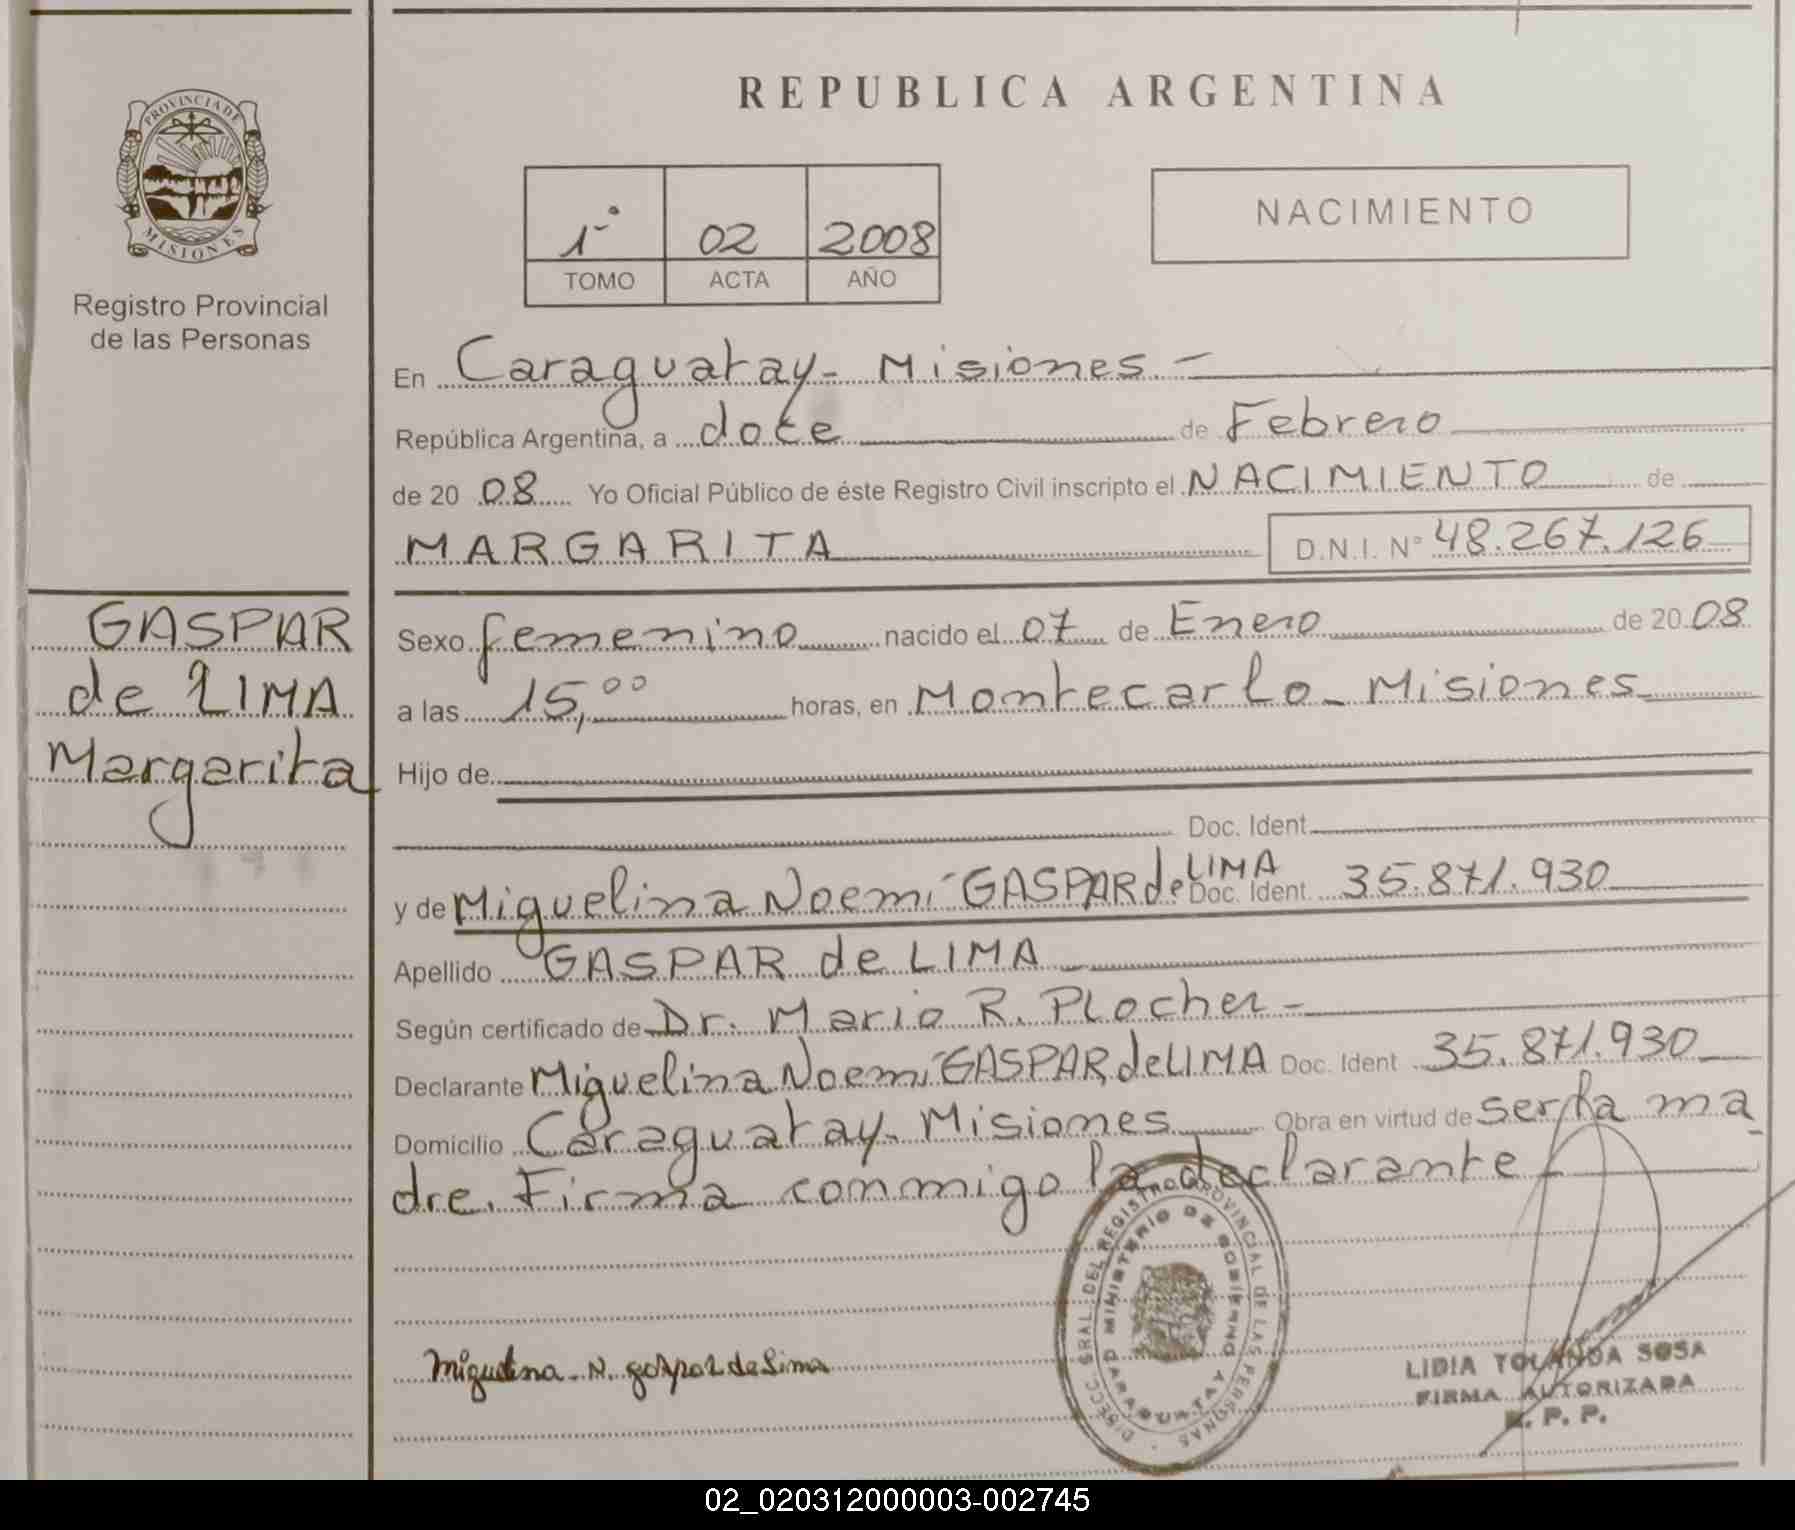 PROVINCIA DE
MISIONES
Registro Provincial
de las Personas
GASPAR
de LIMA
Margarita
REPUBLICA ARGENTINA
1° 02 2008
TOMO ACTA AÑO
NACIMIENTO
En Caraguatay - Misiones. -
República Argentina, a doce de Febrero
de 20 08 Yo Oficial Público de éste Registro Civil inscripto el NACIMIENTO de
MARGARITA D.N.I. N° 48.267.126
Sexo femenino nacido el 07 de Enero de 20 08
a las 15,00 horas, en Montecarlo - Misiones
Hijo de
Doc. Ident.
y de Miguelina Noemí GASPAR de LIMA Doc. Ident. 35.871.930
Apellido GASPAR de LIMA
Según certificado de Dr. Mario R. Plocher -
Declarante Miguelina Noemí GASPAR de LIMA Doc. Ident. 35.871.930
Domicilio Caraguatay - Misiones Obra en virtud de ser la ma
dre. Firma conmigo la declarante -
DIRECC. GRAL. DEL REGISTRO PROVINCIAL DE LAS PERSONAS
MINISTERIO DE GOBIERNO
CARAGUATAY
Miguelina - N. gaspar de Lima
LIDIA YOLANDA SOSA
FIRMA AUTORIZADA
R. P. P.
02_020312000003-002745